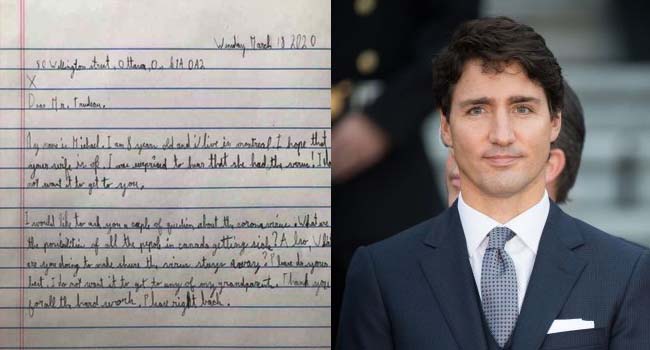 Wensday March 18 2020
80 Wellington street, Ottawa, O., K1A 0A2
X
Dear Mr. Trudeau.
My name is Michael. I am 8 years old and i live in montreal. I hope that
your wife is I was surprised to hear that she had the virus! I do
not want it to get to you.
I would like to ask you a couple of question about the corona virus. What are
the of all the in canada getting sick? Also, What
are you doing to make shure the virus stays away? Please do your
best. I do not want it to get to any of my grandparents. Thank you
for all the hard work. Please right back.